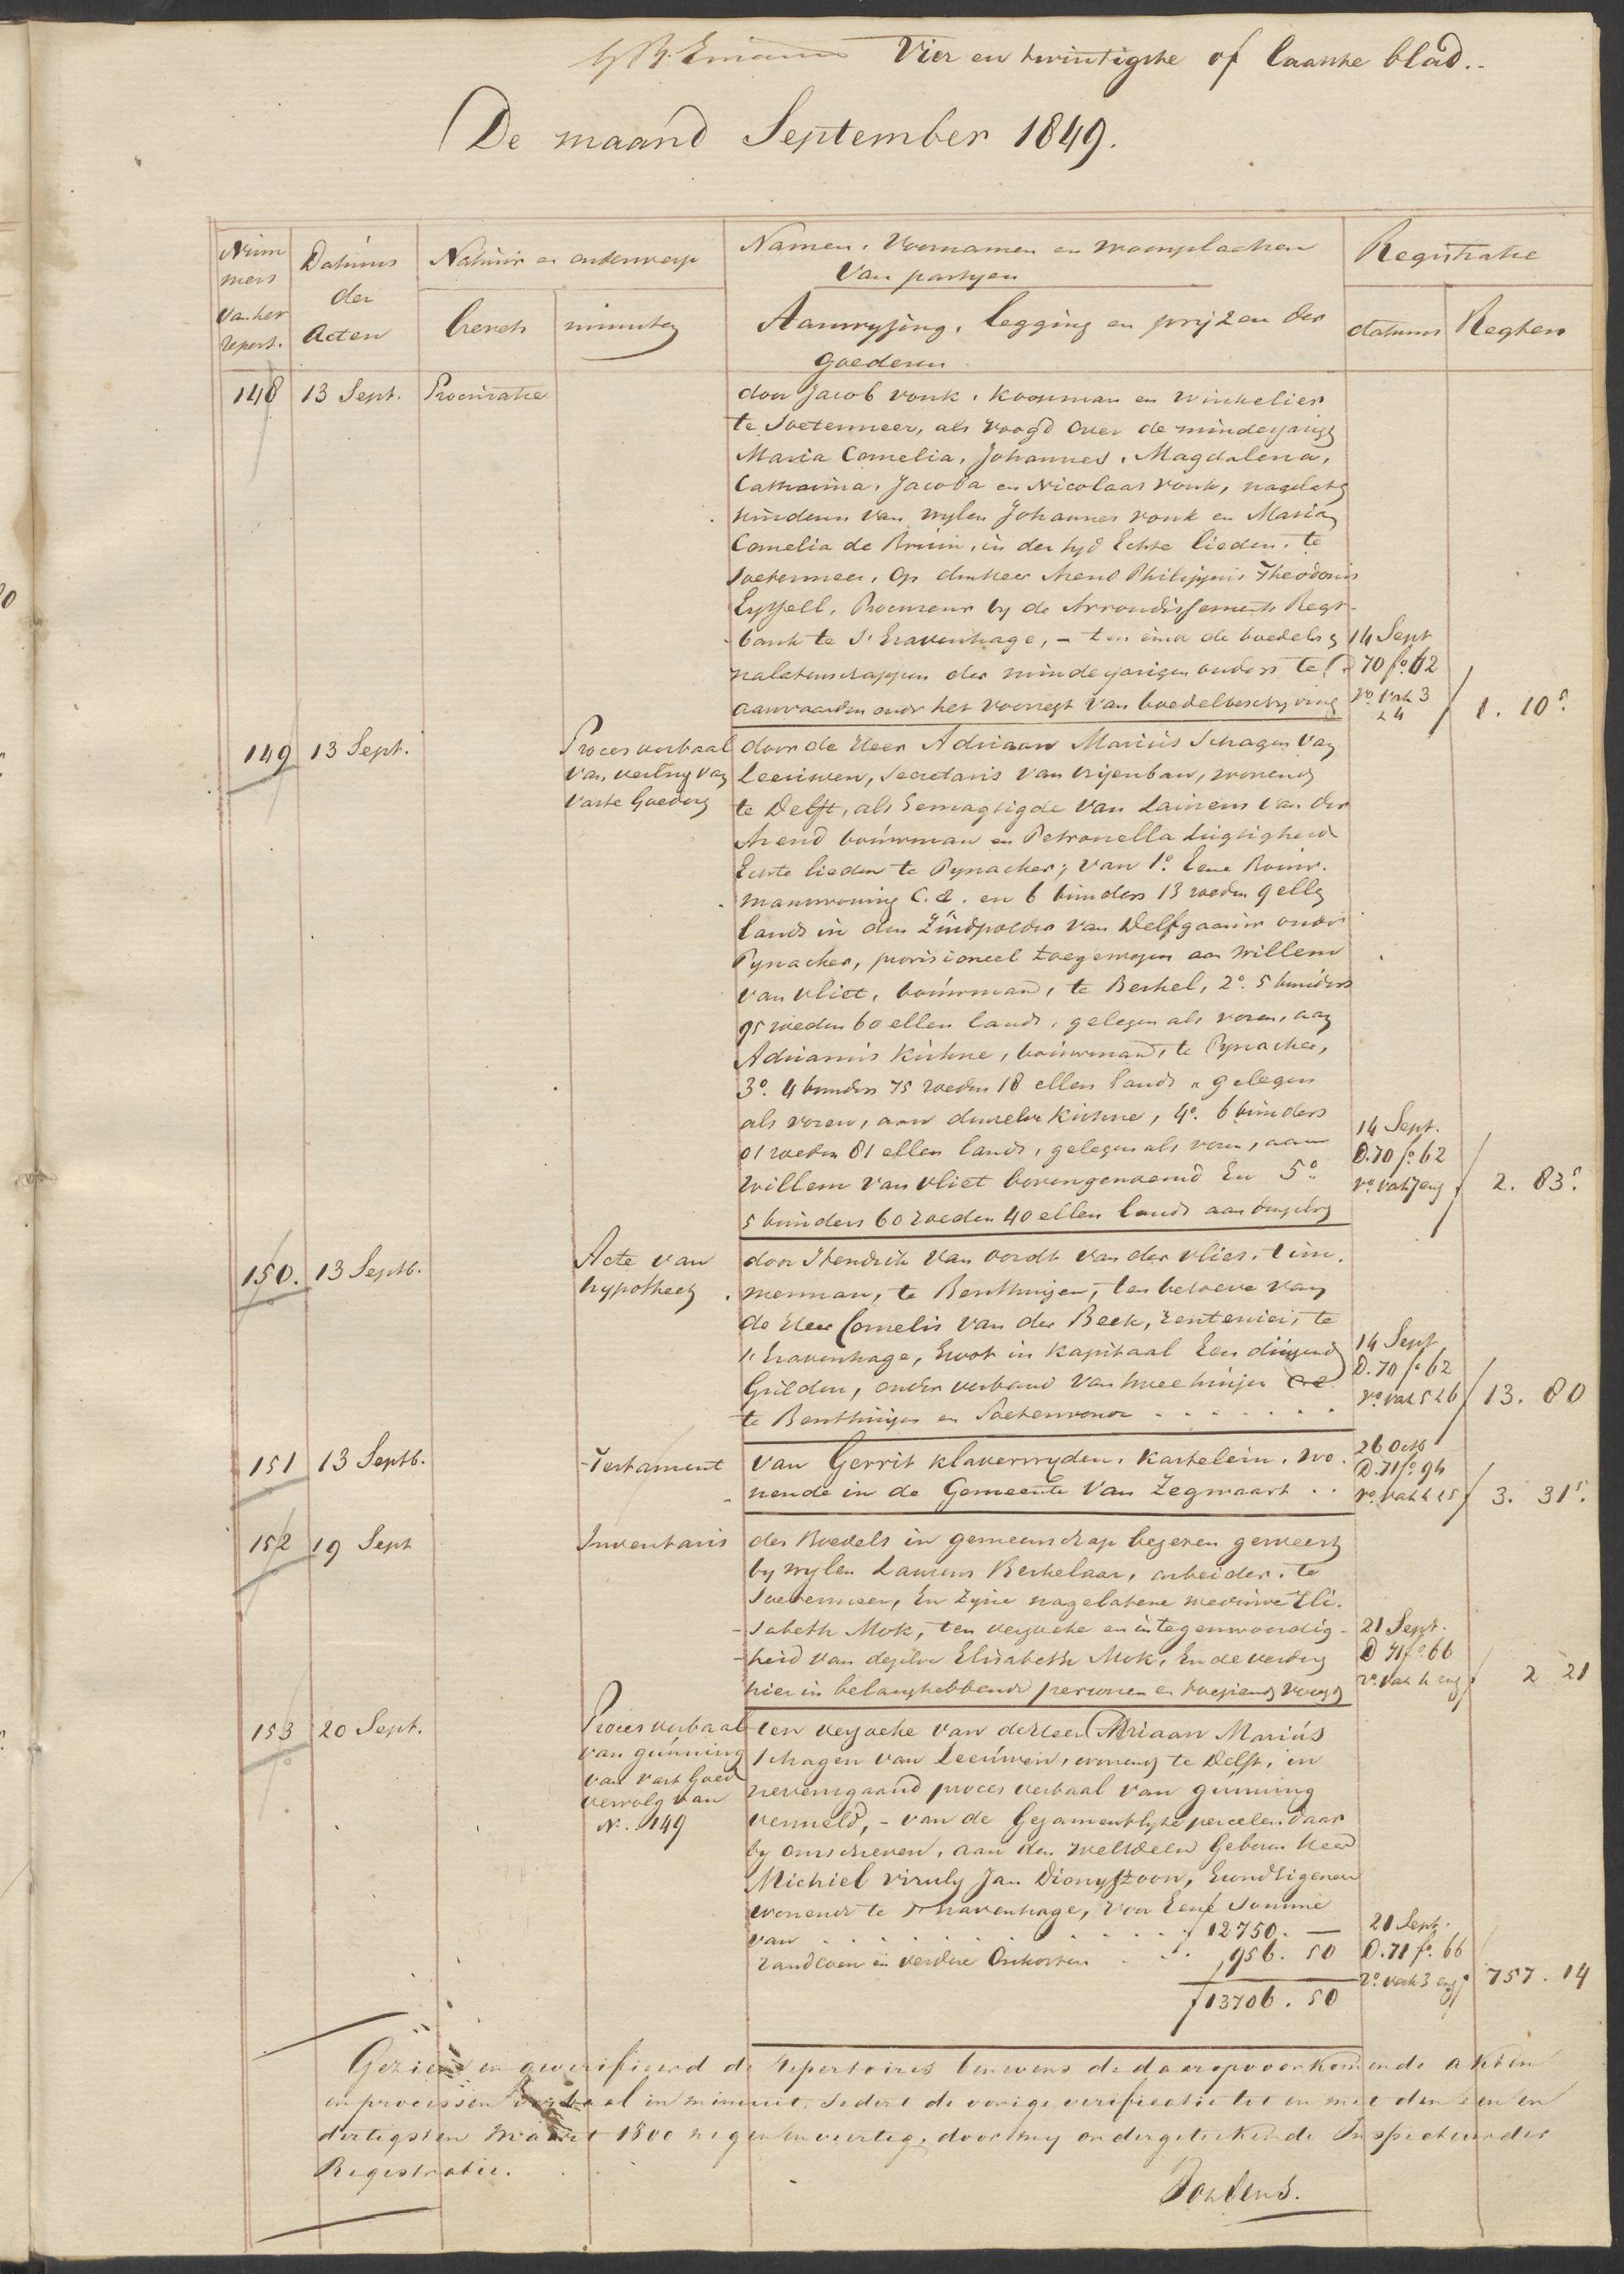 Vier en twintigste of laaste blad.
De maand September 1849.
Num
mers
van het
repert.
Datums
der
Acten
Natuur en onderwerp
brevets
minuten
Namen, Voornamen en woonplaatsen
van partyen
Aanwyzing, legging en prijzen der
goederen
Registratie
datums
Regten
148
13 Sept.
Procuratie
door Jacob vonk, koopman en winkelier
te Soetermeer, als voogd over de minderjarige
Maria Cornelia, Johannes, Magdalena,
Catharina, Jacoba en Nicolaas vonk, nagelaten
kinderen van wylen Johannes vonk en Maria
Cornelia de Bruin, in der tyd Echte lieden, te
Soetermeer, op den Heer Arend Philippus Theodorus
Eyssell, Procureur by de Arrondissements Regt-
bank te s'Gravenhage, - ten einde de boedels en
nalatenschappen der minderjarigen ouders te
aanvaarden onder het voorregt van boedelbeschryving
14 Sept
D 70 fo. 62
vo. vak 3
& 4
1. 10 5.
149
13 Sept.
Proces verbaal
van veiling van
vaste Goederen
door de Heer Adriaan Marius Schagen van
Leeuwen, Secretaris van Vrijenban, wonende
te Delft, als gemagtigde van Laurens van der
Arend bouwman en Petronella Lugtigheid
Echte lieden te Pynacker; van 1o. Eene Bouw-
manswoning c.a. en 6 bunders 13 roeden 9 ellen
lands in den Zuidpolder van Delfgaauw onder
Pynacker, provisioneel toegewezen aan Willem
van Vliet, bouwman, te Berkel, 2o. 5 bunders
95 roeden 60 ellen lands, gelegen als voren, aan
Adrianus Kuhne, bouwman, te Pynacker,
3o. 4 bunders 75 roeden 18 ellen lands, gelegen
als voren, aan denzelve Kuhne, 4o. 6 bunders
01 roeden 81 ellen lands, gelegen als voren, aan
Willem van Vliet bovengenoemd En 5o.
5 bunders 60 roeden 40 ellen lands aan denzelven
14 Sept.
D. 70 fo. 62
vo. vak 7 en
2. 83 5.
150.
13 Septb.
Acte van
hypotheek
door Hendrik van oordt van der vlies, tim-
merman, te Benthuizen, ten behoeve van
de Heer Cornelis van der Beek, rentenier, te
s'Gravenhage, groot in kapitaal Een duizend
Gulden, onder verband van twee huizen c.a.
te Benthuizen en Soeterwoude
14 Sept
D. 70 fo. 62
vo. vak 5 & 6
13. 80
151
13 Septb.
Testament
van Gerrit klaverwyden, kastelein, wo-
nende in de Gemeente van Zegwaart
26 Octb
D. 71 fo. 94
vo. vak 4 & 5
3. 31 5.
152
19 Sept
Inventaris
des Boedels in gemeenschap bezeten geweest
by wylen Laurens Berkelaar, arbeider, te
Soetermeer, En zyne nagelatene weduwe Eli-
sabeth Mok, ten verzoeke en in tegenwoordig-
heid van dezelve Elisabeth Mok, En de verdere
hier in belanghebbende personen en toeziende voogd
21 Sept.
D 71 fo. 66
vo. vak
2 21
153
20 Sept.
Proces verbaal
van gunning
van vast Goed
vervolg van
No. 149
ten verzoeke van de Heer Adriaan Marius
Schagen van Leeuwen, wonende te Delft, in
nevensgaand proces verbaal van gunning
vermeld, - van de Gezamentlyke perceelen daar
by omschreven, aan den weledelen Geboren Heer
Michiel Viruly Jan Dionyszoon, Grondeigenaar
wonende te s'Gravenhage, voor Eene Somme
van f 12750. —
randsoen en verdere Onkosten „ 956. 50
f 13706. 50
21 Sept.
D. 71 fo. 66
vo. vak 3
757. 14
Gezien en geverifieerd de repertoires benevens de daaropvoorkomende akten
en processen verbaal in minuut, sedert de vorige verificatie tot en met den een en
dertigsten Maart 1800 negen en veertig, door my ondergeteekende Inspecteur der
Registratie.